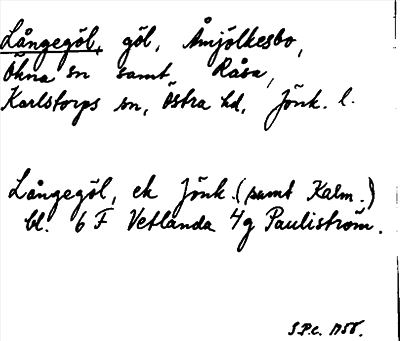 Långegöl, göl, Åmjölkesbo,
Ökna sn samt Råsa,
Karlstorps sn, Östra hd, Jönk. l.
Långegöl, ek Jönk. (samt Kalm.)
bl. 6 F Vetlanda 4g Pauliström.
S.P.C. 1955.